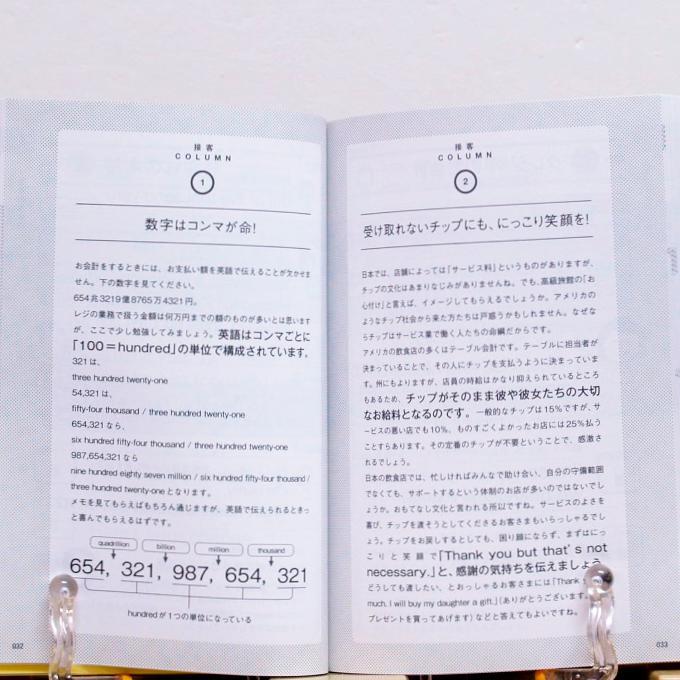 接客
COLUMN
1
数字はコンマが命!
お会計をするときには、お支払い額を英語で伝えることが欠かせま
せん。下の数字を見てください。
654兆3219億8765万4321円。
レジの業務で扱う金額は何万円までの額のものが多いとは思います
が、ここで少し勉強してみましょう。英語はコンマごとに
「100=hundred」の単位で構成されています。
321は、
three hundred twenty-one
54,321は、
fifty-four thousand / three hundred twenty-one
654,321なら、
six hundred fifty-four thousand / three hundred twenty-one
987,654,321なら
nine hundred eighty seven million / six hundred fifty-four thousand /
three hundred twenty-one となります。
メモを見てもらえばもちろん通じますが、英語で伝えられるときっ
と喜んでもらえるはずです。
quadrillion billion million thousand
654, 321, 987, 654, 321
hundredが1つの単位になっている
032
接客
COLUMN
2
受け取れないチップにも、にっこり笑顔を!
日本では、店舗によっては「サービス料」というものがありますが、
チップの文化はあまりなじみがありませんね。でも、高級旅館の「お
心付け」と言えば、イメージしてもらえるでしょうか。アメリカの
ようなチップ社会から来た方たちは戸惑うかもしれません。なぜな
らチップはサービス業で働く人たちの命綱だからです。
アメリカの飲食店の多くはテーブル会計です。テーブルに担当者が
決まっていることで、その人にチップを支払うように決まっていま
す。州にもよりますが、店員の時給はかなり抑えられているところ
もあるため、チップがそのまま彼や彼女たちの大切
なお給料となるのです。一般的なチップは15%ですが、サ
ービスの悪い店でも10%、ものすごくよかったお店には25%払う
ことすらあります。その定番のチップが不要ということで、感激さ
れるでしょう。
日本の飲食店では、忙しければみんなで助け合い、自分の守備範囲
でなくても、サポートするという体制のお店が多いのではないでし
ょうか。おもてなし文化と言われる所以ですね。サービスのよさを
喜び、チップを渡そうとしてくださるお客さまもいらっしゃるでし
ょう。チップをお戻しするとしても、困り顔にならず、まずはにっ
こりと笑顔で「Thank you but that's not
necessary.」と、感謝の気持ちを伝えましょう
どうしても渡したい、とおっしゃるお客さまには「Thank
much. I will buy my daughter a gift.」(ありがとうございます。
プレゼントを買ってあげます)などと答えてもよいですね。
033